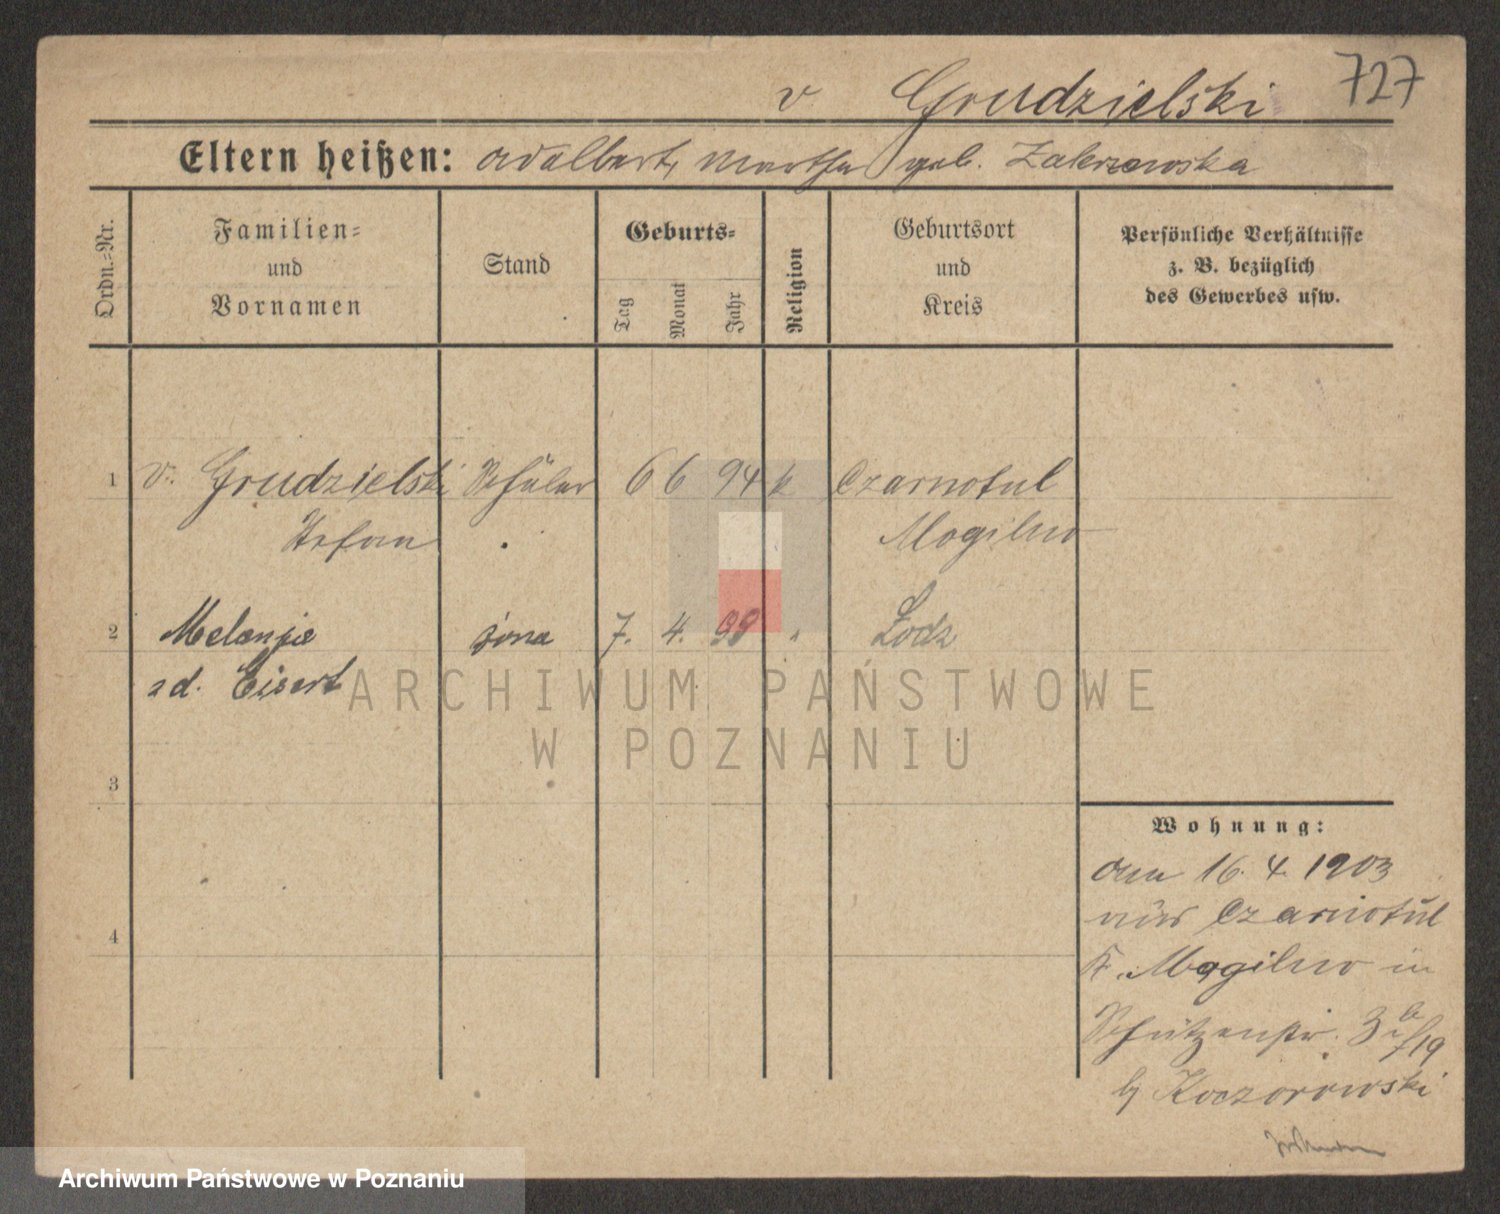 727
v Grudzielski
Eltern heißen: Adalbert, Martha geb. Zakrzewska
Ordn.-Nr.
Familien-
und
Vornamen
Stand
Geburts-
Tag
Monat
Jahr
Religion
Geburtsort
und
Kreis
Persönliche Verhältnisse
z. B. bezüglich
des Gewerbes usw.
1 v. Grudzielski Schüler 6 6 94 k Czarnotul
Stefan Mogilno
2 Melanja żona 7. 4. 98 " Łodz
zd. Eisert
3
4
Wohnung:
am 16. 4. 1903
aus Czarnotul
K. Mogilno in
Schützenstr. 3
b/ Koczorowski
ARCHIWUM PAŃSTWOWE
W POZNANIU
Archiwum Państwowe w Poznaniu